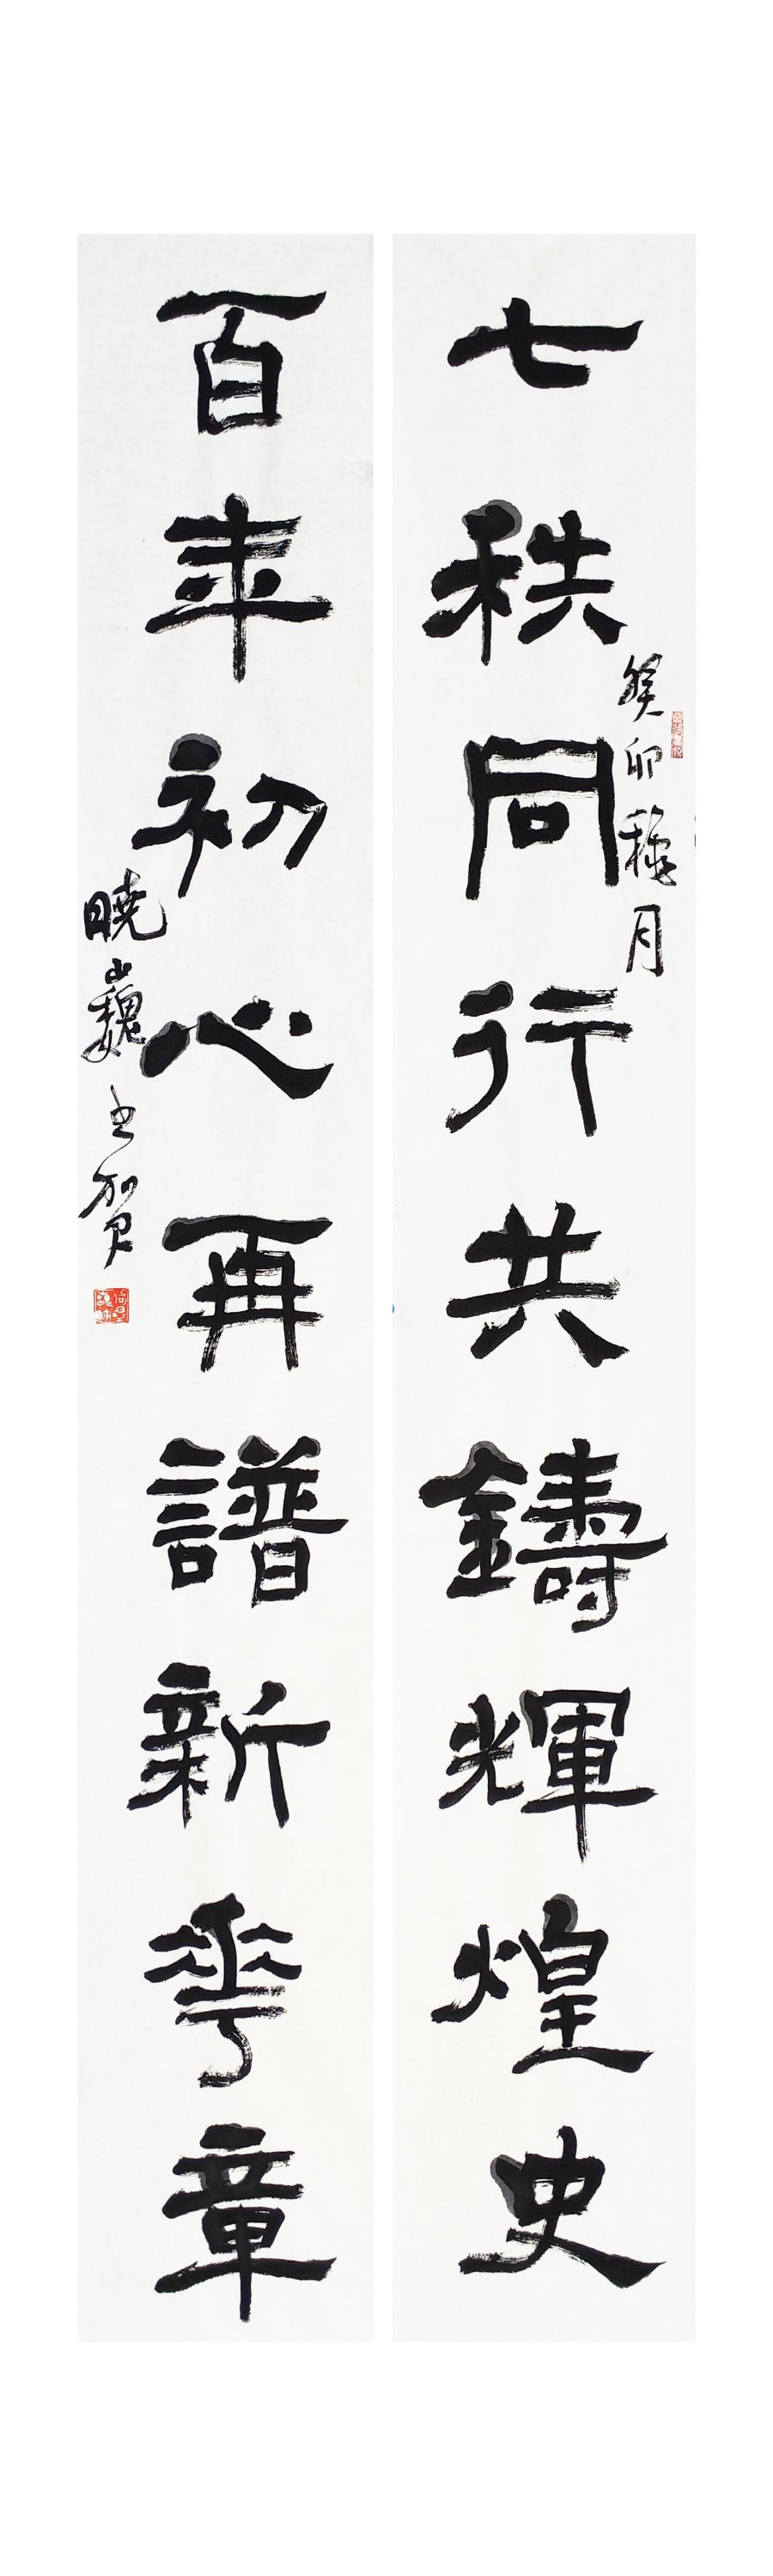 七秩同行共鑄輝煌史
癸卯穐月
百年初心再譜新華章
曉巍书贺